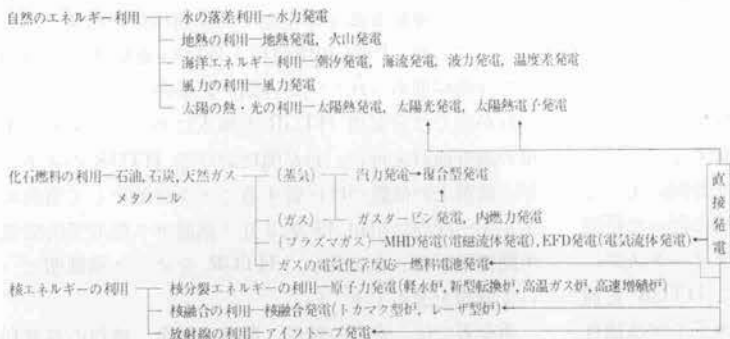 自然のエネルギー利用 水の落差利用—水力発電
地熱の利用—地熱発電, 火山発電
海洋エネルギー利用—潮汐発電, 海流発電, 波力発電, 温度差発電
風力の利用—風力発電
太陽の熱・光の利用—太陽熱発電, 太陽光発電, 太陽熱電子発電
化石燃料の利用—石油, 石炭, 天然ガス (蒸気) 汽力発電→複合型発電
メタノール
(ガス) ガスタービン発電, 内燃力発電
(プラズマガス)—MHD発電(電磁流体発電), EFD発電(電気流体発電)
ガスの電気化学反応—燃料電池発電
核エネルギーの利用 核分裂エネルギーの利用—原子力発電(軽水炉, 新型転換炉, 高温ガス炉, 高速増殖炉)
核融合の利用—核融合発電(トカマク型炉, レーザ型炉)
放射線の利用—アイソトープ発電
直接発電